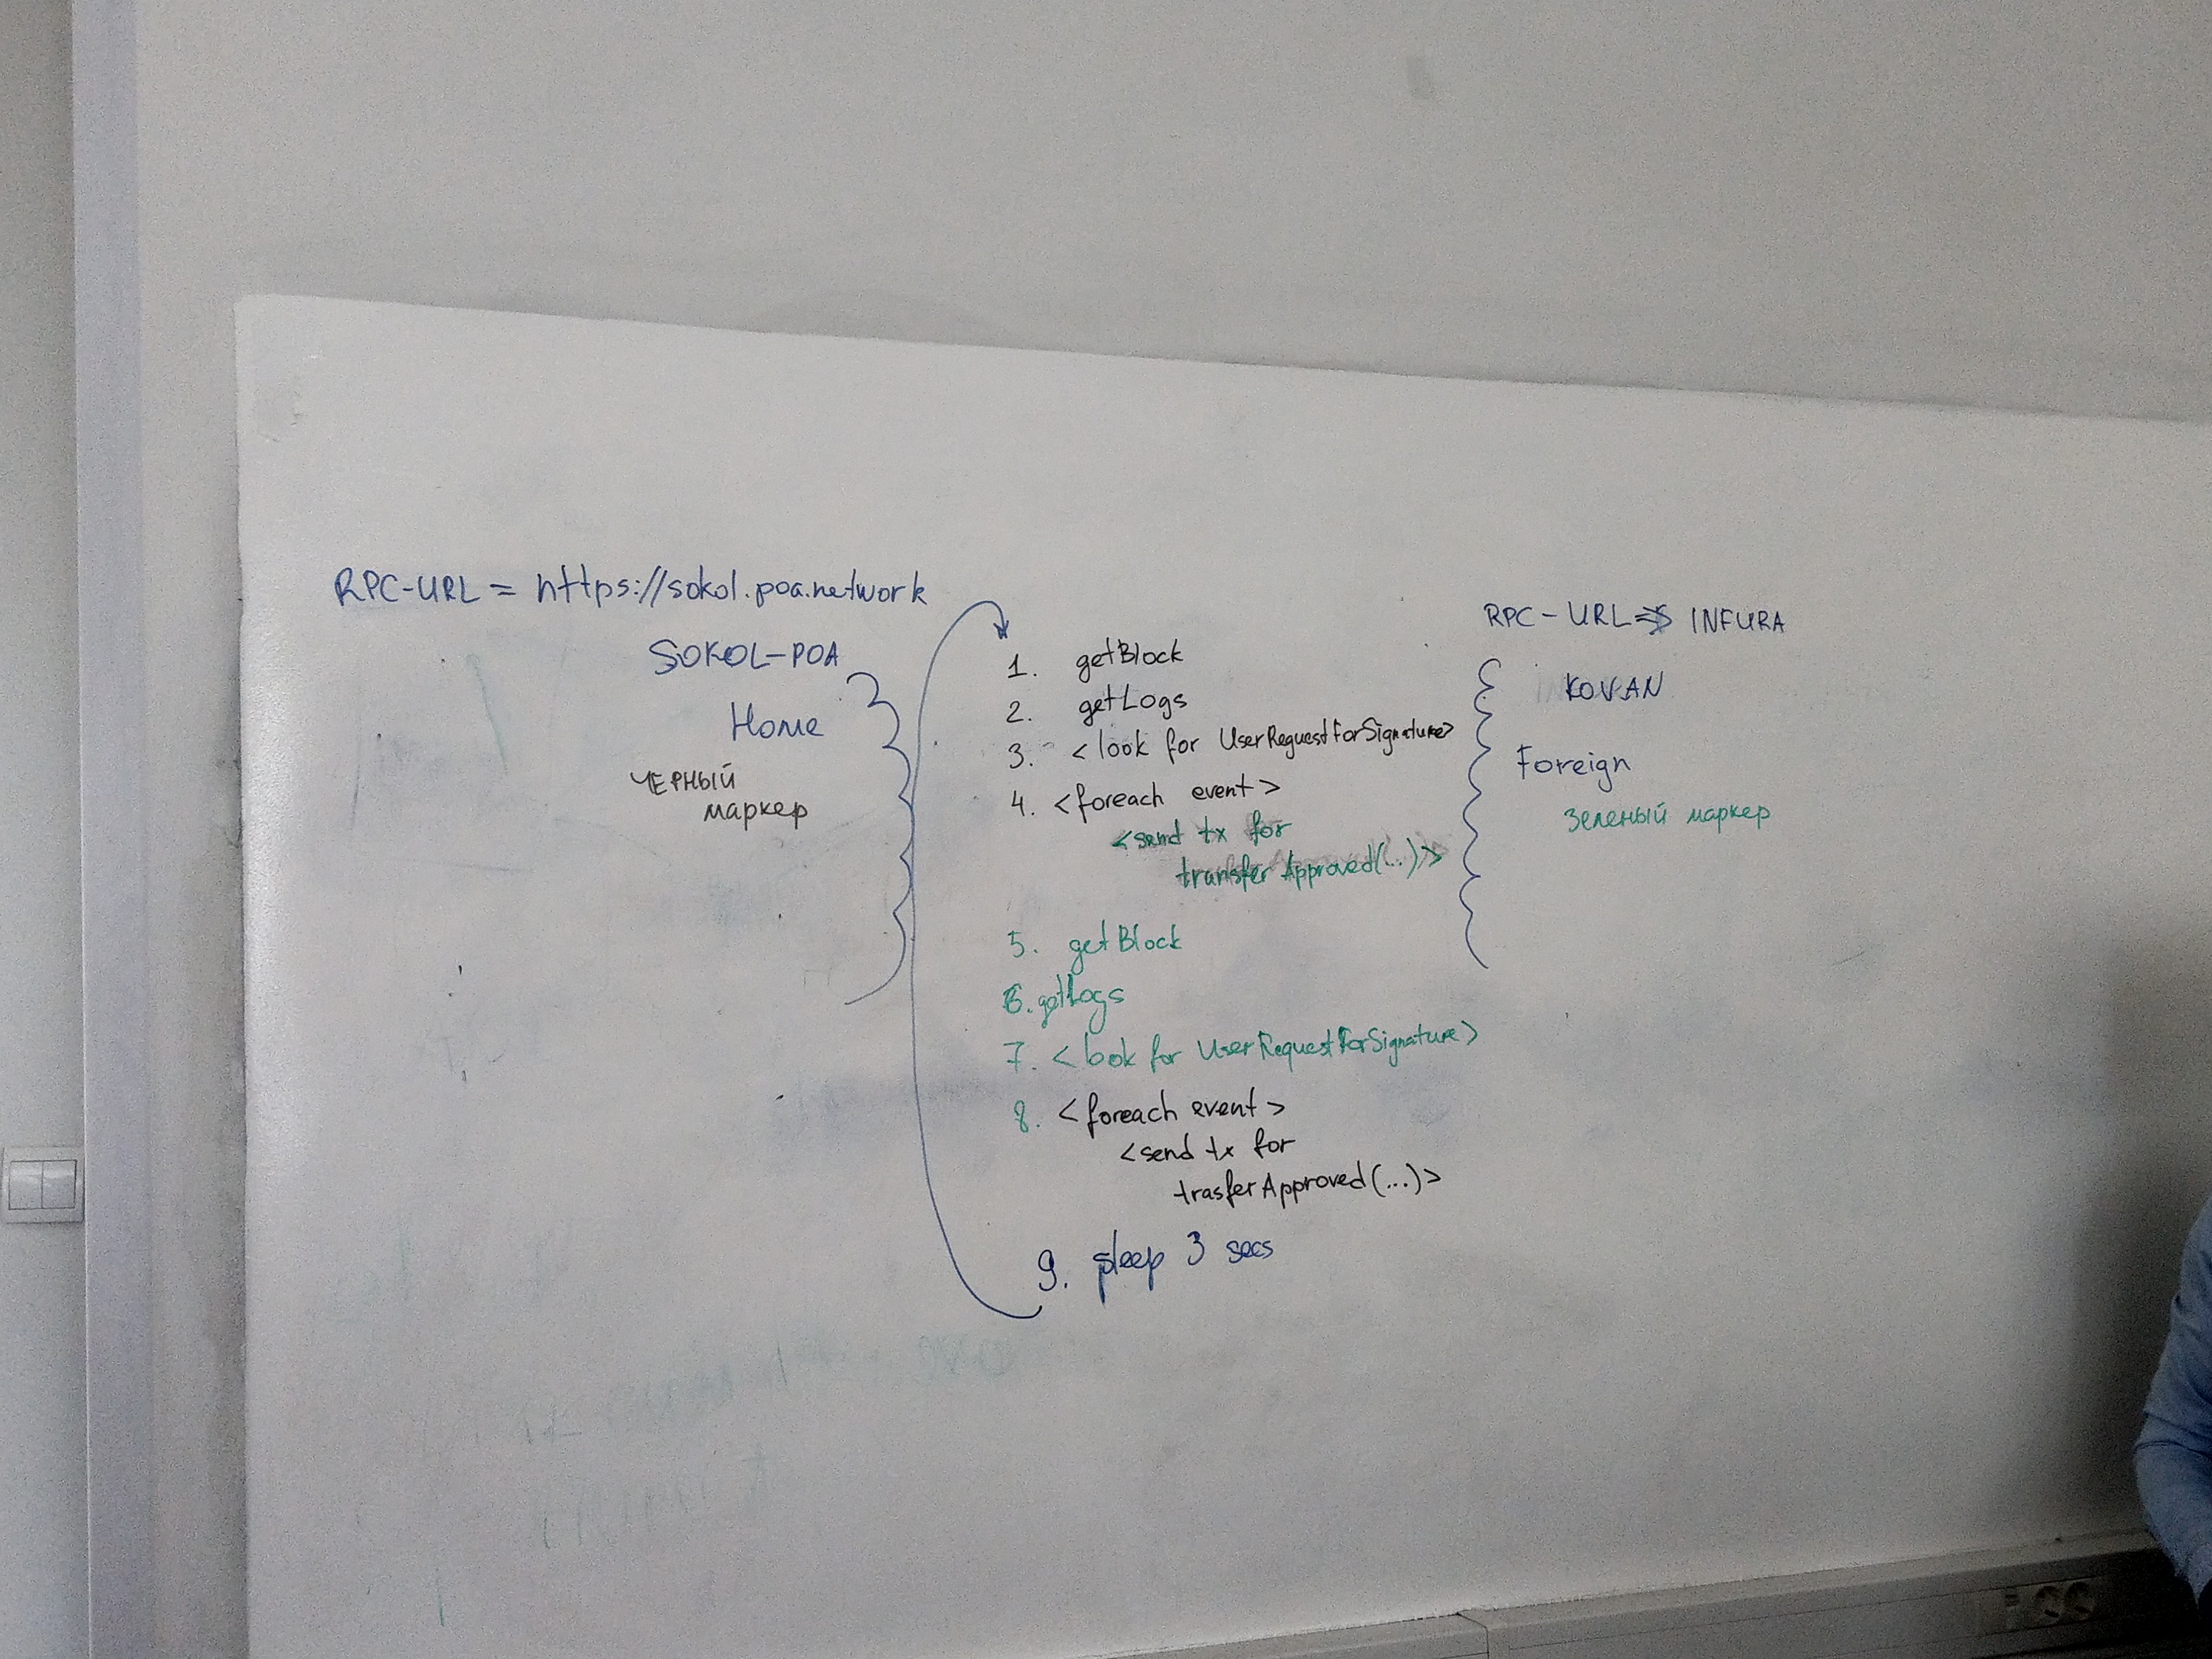 RPC-URL = https://sokol.poa.network
SOKOL-POA
Home
ЧЕРНЫЙ
маркер
1. getBlock
2. getLogs
3. <look for UserRequestForSignature>
4. <foreach event>
<send tx for
transferApproved(...)>
5. getBlock
6. getLogs
7. <look for UserRequestForSignature>
8. <foreach event>
<send tx for
trasferApproved(...)>
9. sleep 3 secs
RPC-URL => INFURA
KOVAN
Foreign
Зеленый маркер